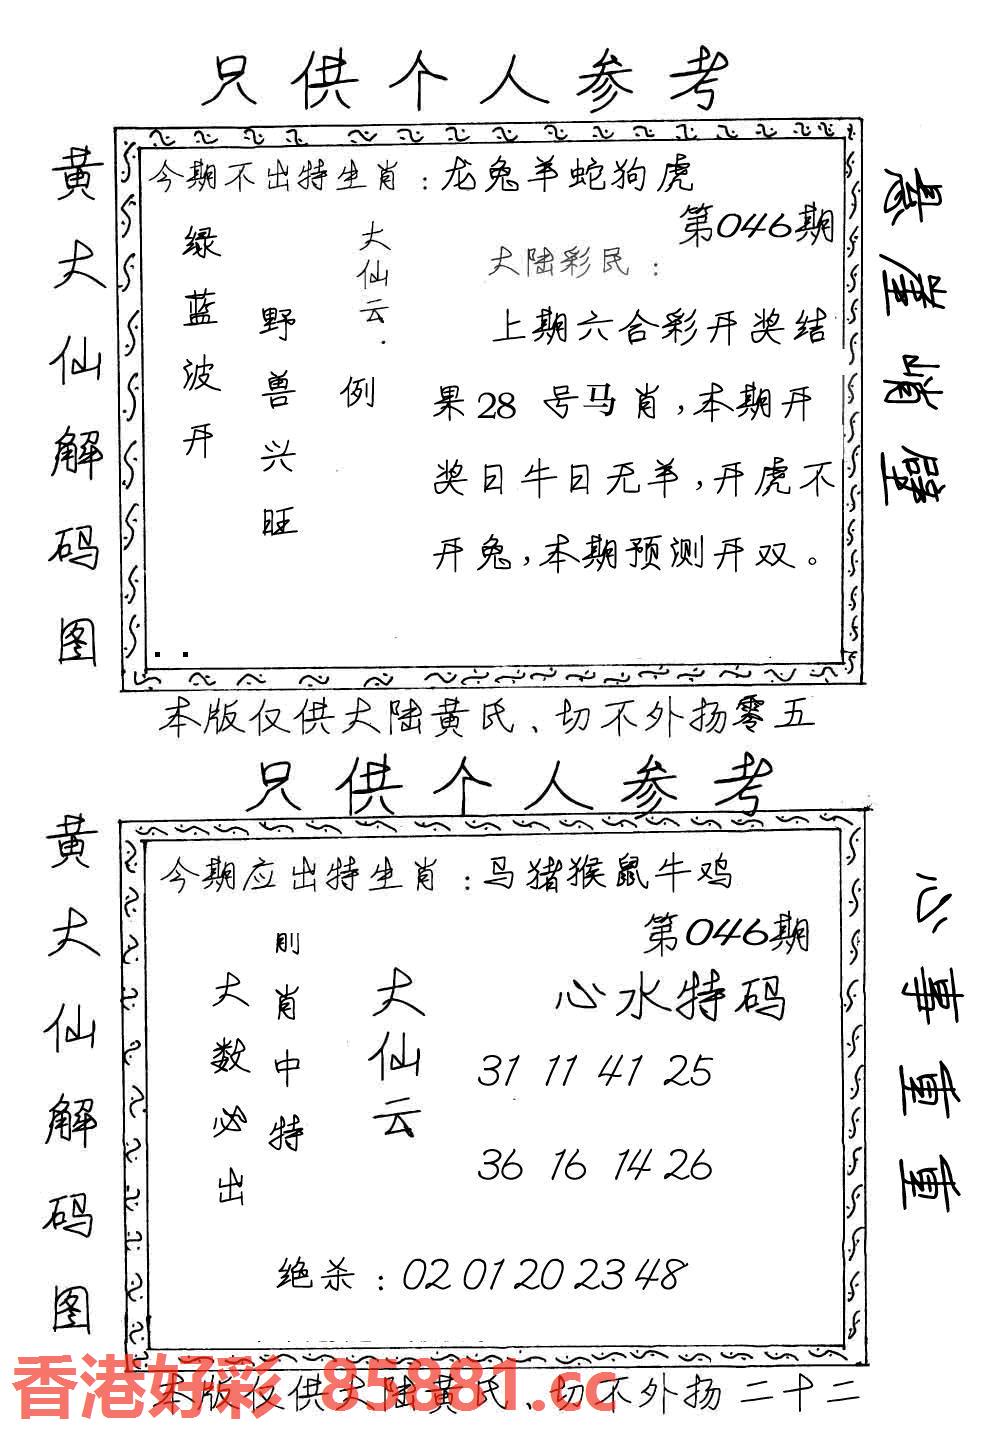 只供个人参考
黄大仙解码图
今期不出特生肖：龙兔羊蛇狗虎
第046期
大仙云：
例
野兽兴旺
绿蓝波开
大陆彩民：
上期六合彩开奖结
果28 号马肖，本期开
奖日牛日无羊，开虎不
开兔，本期预测开双。
悬崖峭壁
本版仅供大陆黄氏、切不外扬零五
只供个人参考
黄大仙解码图
今期应出特生肖：马猪猴鼠牛鸡
第046期
大仙云
肖中特
大数必出
心水特码
31 11 41 25
36 16 14 26
绝杀：02 01 20 23 48
心事重重
本版仅供大陆黄氏、切不外扬二十二
香港好彩 85881.cc